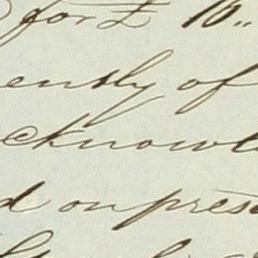 for £ 10"
ently of
cknowl
d on pres